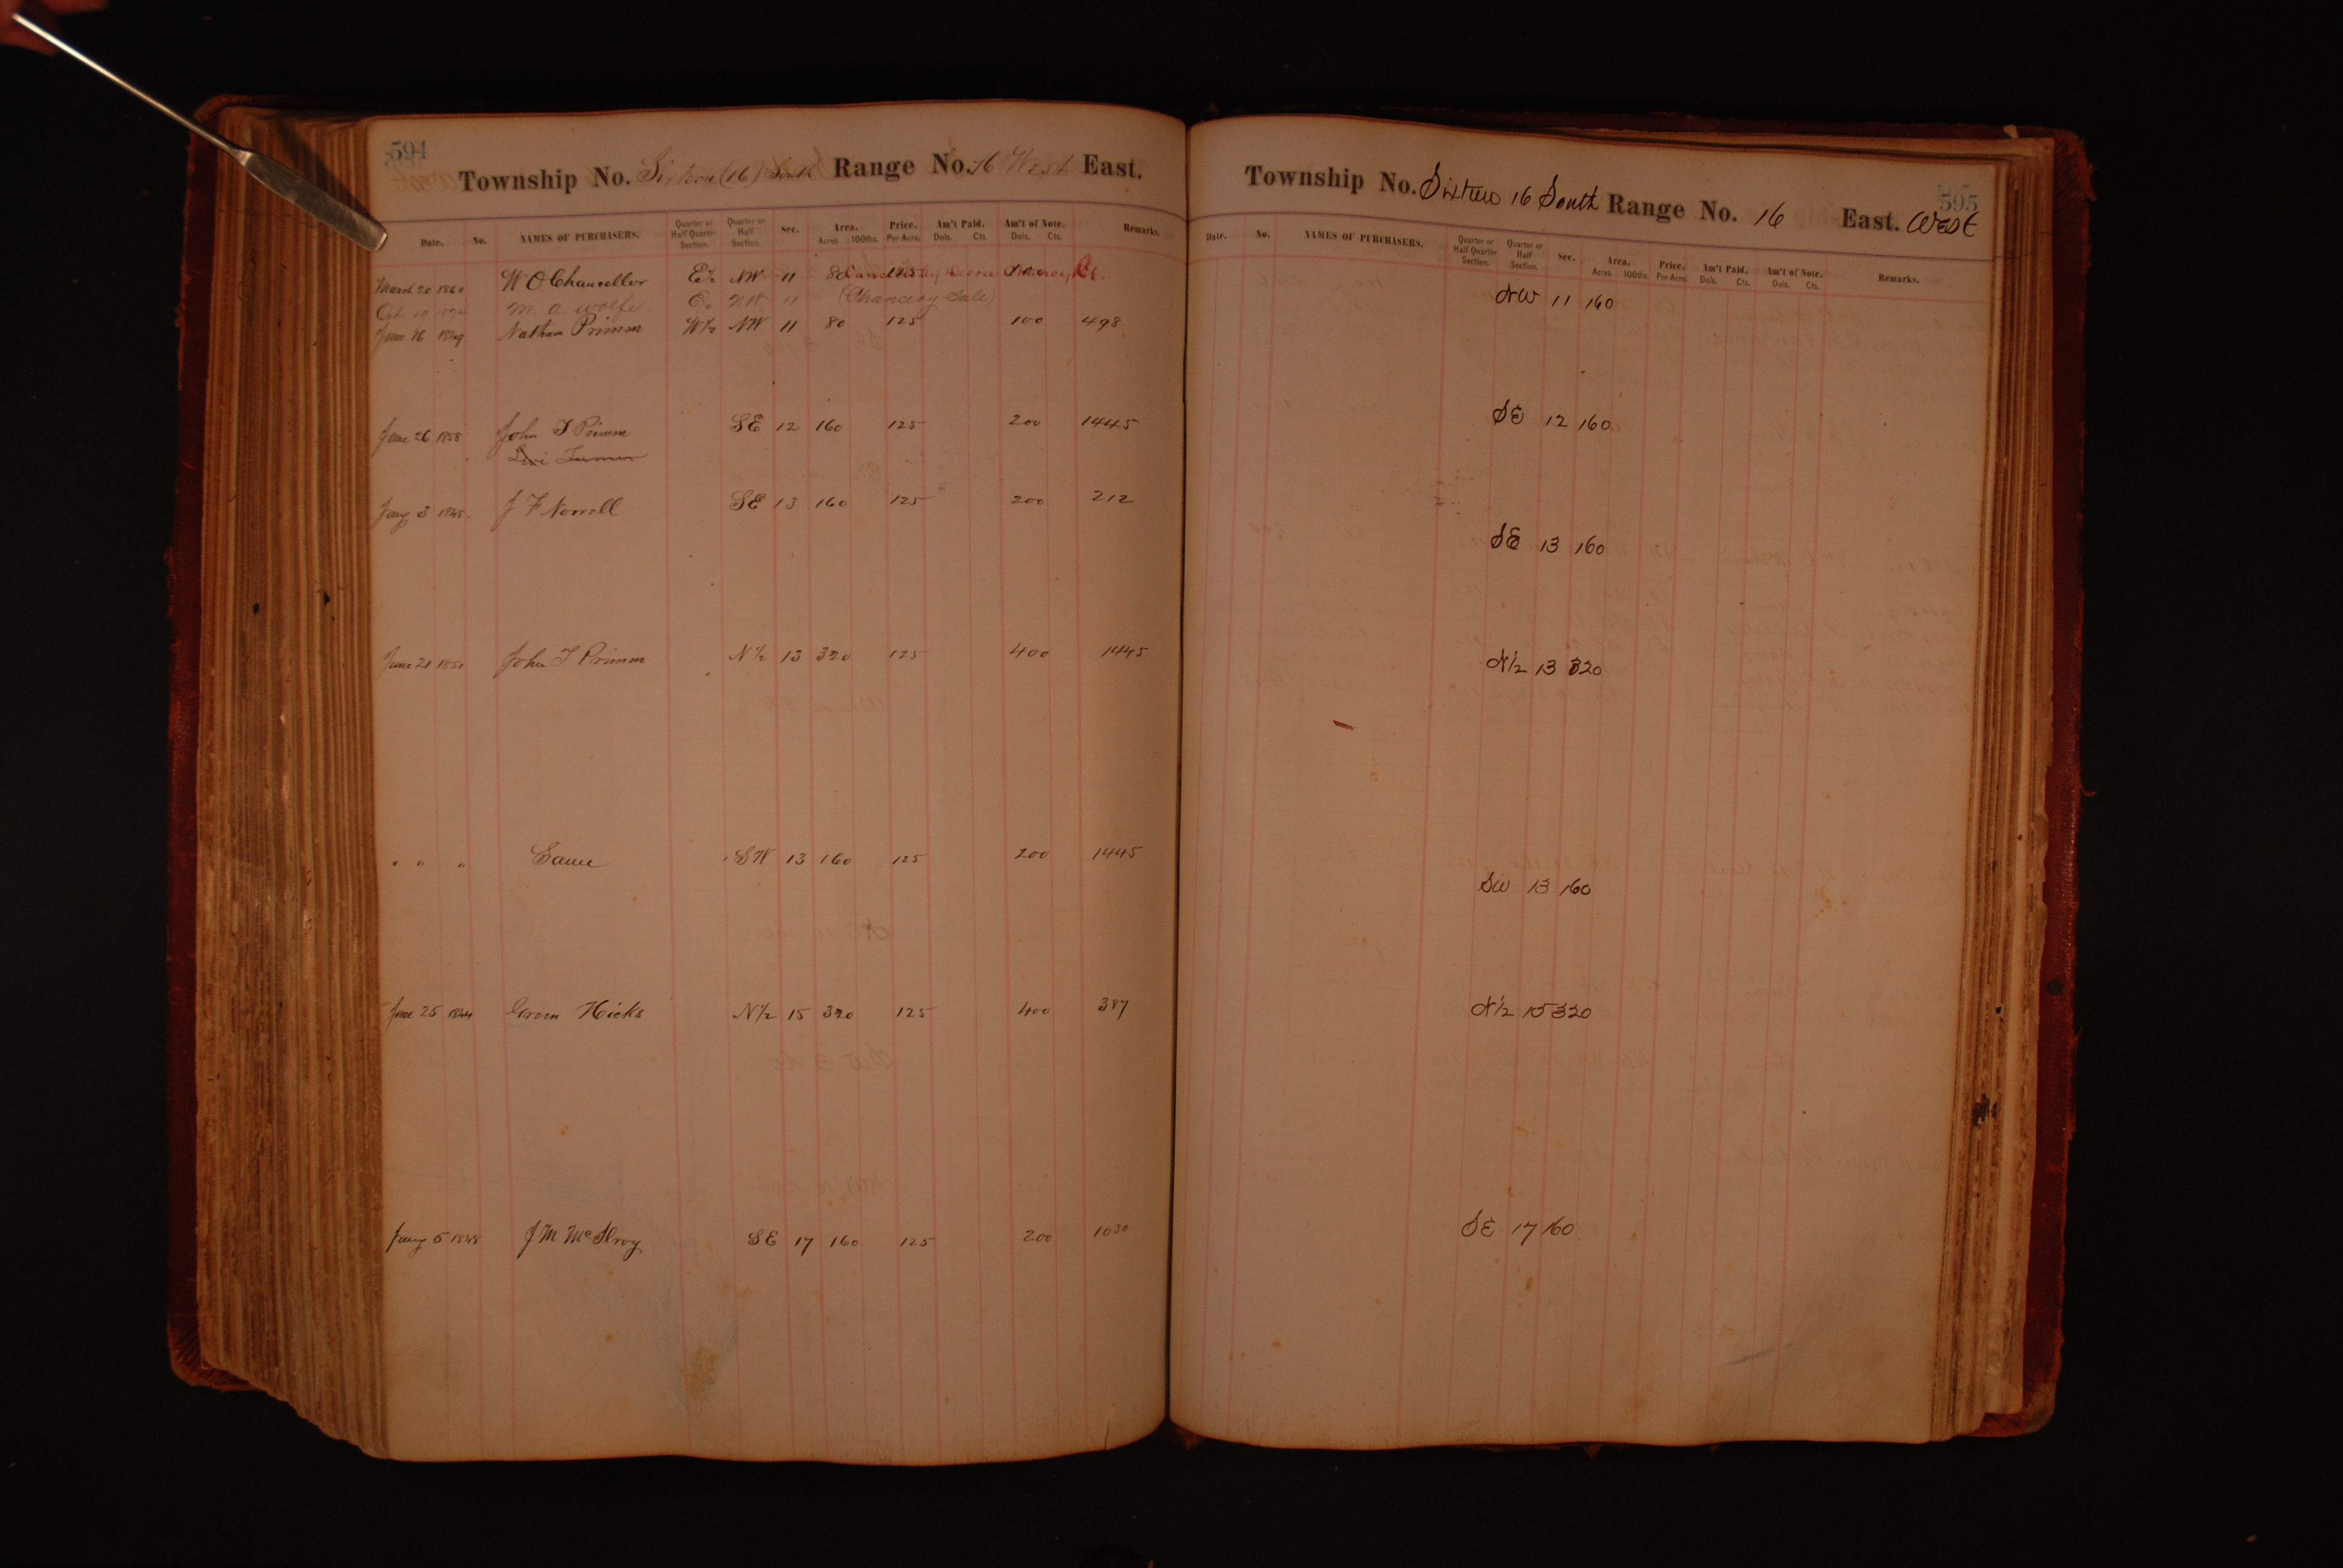 594
Township No. Sixteen (16) South Range No. 16 West East.
Date. No. NAMES OF PURCHASERS. Quarter or Half Quarter Section. Quarter or Half Section. Sec. Area. Acres 100ths. Price. Per Acre. Am't Paid. Dols. Cts. Am't of Note. Dols. Cts. Remarks.
March 20 1860 W O Chancellor E½ NW 11 80 125 100
Decree Chancery Ct.
M. A. Wolfe E½ NW 11 (Chancery Sale)
June 16 Nathan Primm W½ NW 11 80 125 100 498
June 26 1858 John T Primm SE 12 160 125 200 1445
Levi Turner
Jany 3 1845. J F Norrell SE 13 160 125 200 212
June 21 John T Primm N½ 13 320 125 400 1445
" " " Same SW 13 160 125 200 1445
June 25 1844 Green Hicks N½ 15 320 125 400 387
Jany 5 1848 J. M McIlroy SE 17 160 125 200 1030
595
Township No. Sixteen 16 South Range No. 16 East. West
Date. No. NAMES OF PURCHASERS. Quarter or Half Quarter Section. Quarter or Half Section. Sec. Area. Acres 100ths. Price. Per Acre. Am't Paid. Dols. Cts. Am't of Note. Dols. Cts. Remarks.
NW 11 160
SE 12 160
SE 13 160
N½ 13 320
SW 13 160
N½ 15 320
SE 17 160